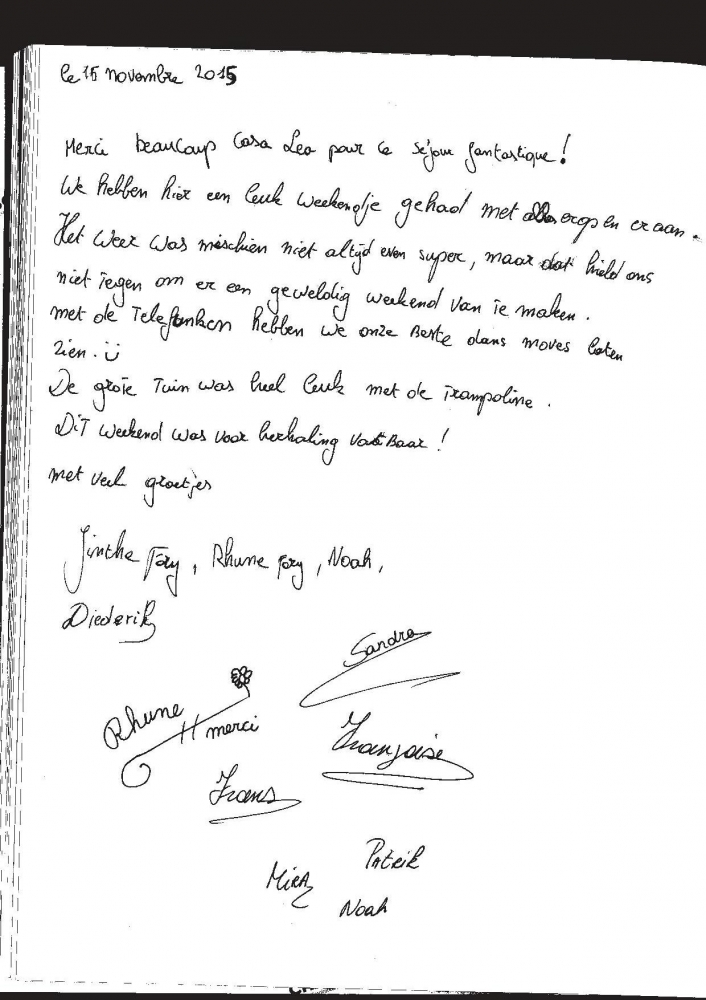 le 15 novembre 2015
Merci beaucoup Casa Leo pour ce séjour fantastique!
We hebben hier een leuk weekendje gehad met alles erop en eraan.
Het weer was mischien niet altijd even super, maar dat hield ons
niet tegen om er een geweldig weekend van te maken.
met de Telefonken hebben we onze beste dans moves laten
zien.
De grote tuin was heel leuk met de trampoline.
Dit weekend was voor herhaling vatbaar!
met veel groetjes
Jinthe Fory, Rhune Fory, Noah,
Diederik
Sandra
Rhune
merci
Françoise
Frans
Patrik
Mira
Noah